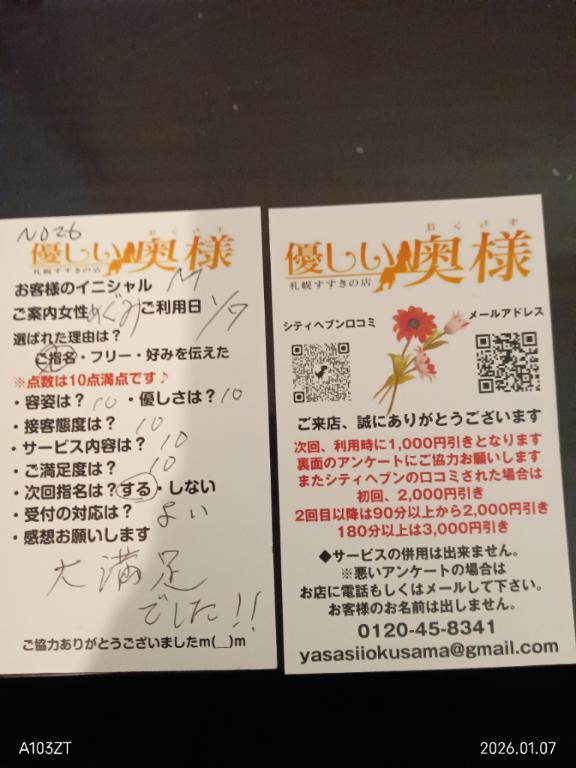 NO26
おくさま
優しい奥様
札幌すすきの店
お客様のイニシャル M
ご案内女性 めぐみ ご利用日 1/7
選ばれた理由は?
ご指名・フリー・好みを伝えた
※点数は10点満点です♪
・容姿は? 10 ・優しさは? 10
・接客態度は? 10
・サービス内容は? 10
・ご満足度は? 10
・次回指名は? する・しない
・受付の対応は? よい
・感想お願いします
大満足
でした!!
ご協力ありがとうございましたm(__)m
おくさま
優しい奥様
札幌すすきの店
シティヘブン口コミ
メールアドレス
ご来店、誠にありがとうございます
次回、利用時に1,000円引きとなります
裏面のアンケートにご協力お願いします
またシティヘブンの口コミされた場合は
初回、2,000円引き
2回目以降は90分以上から2,000円引き
180分以上は3,000円引き
◆サービスの併用は出来ません。
※悪いアンケートの場合は
お店に電話もしくはメールして下さい。
お客様のお名前は出しません。
0120-45-8341
yasasiiokusama@gmail.com
A103ZT
2026.01.07